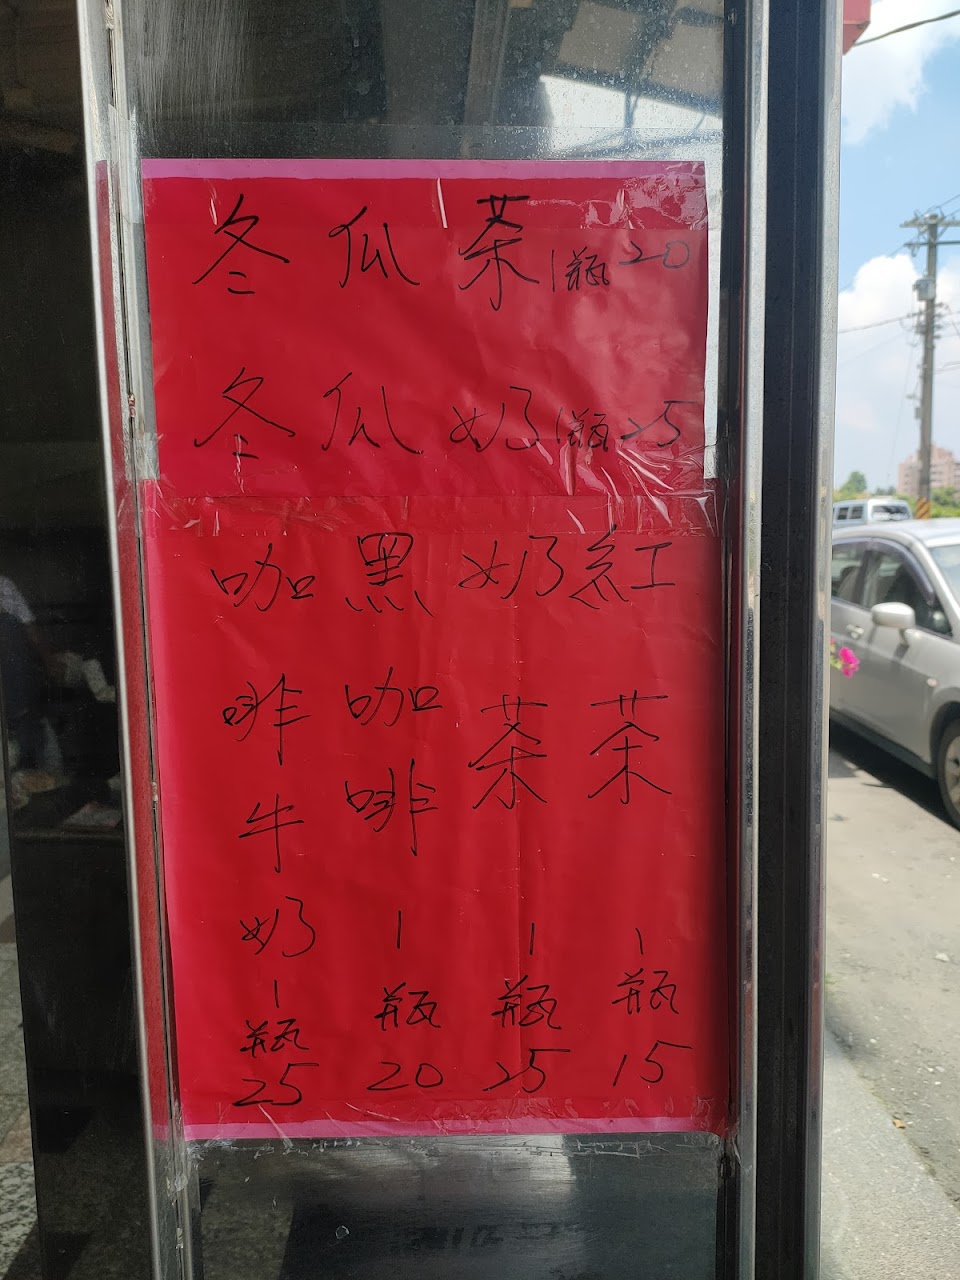 冬瓜茶1瓶20
冬瓜奶1瓶25
紅茶1瓶15
奶茶1瓶25
黑咖啡1瓶20
咖啡牛奶1瓶25